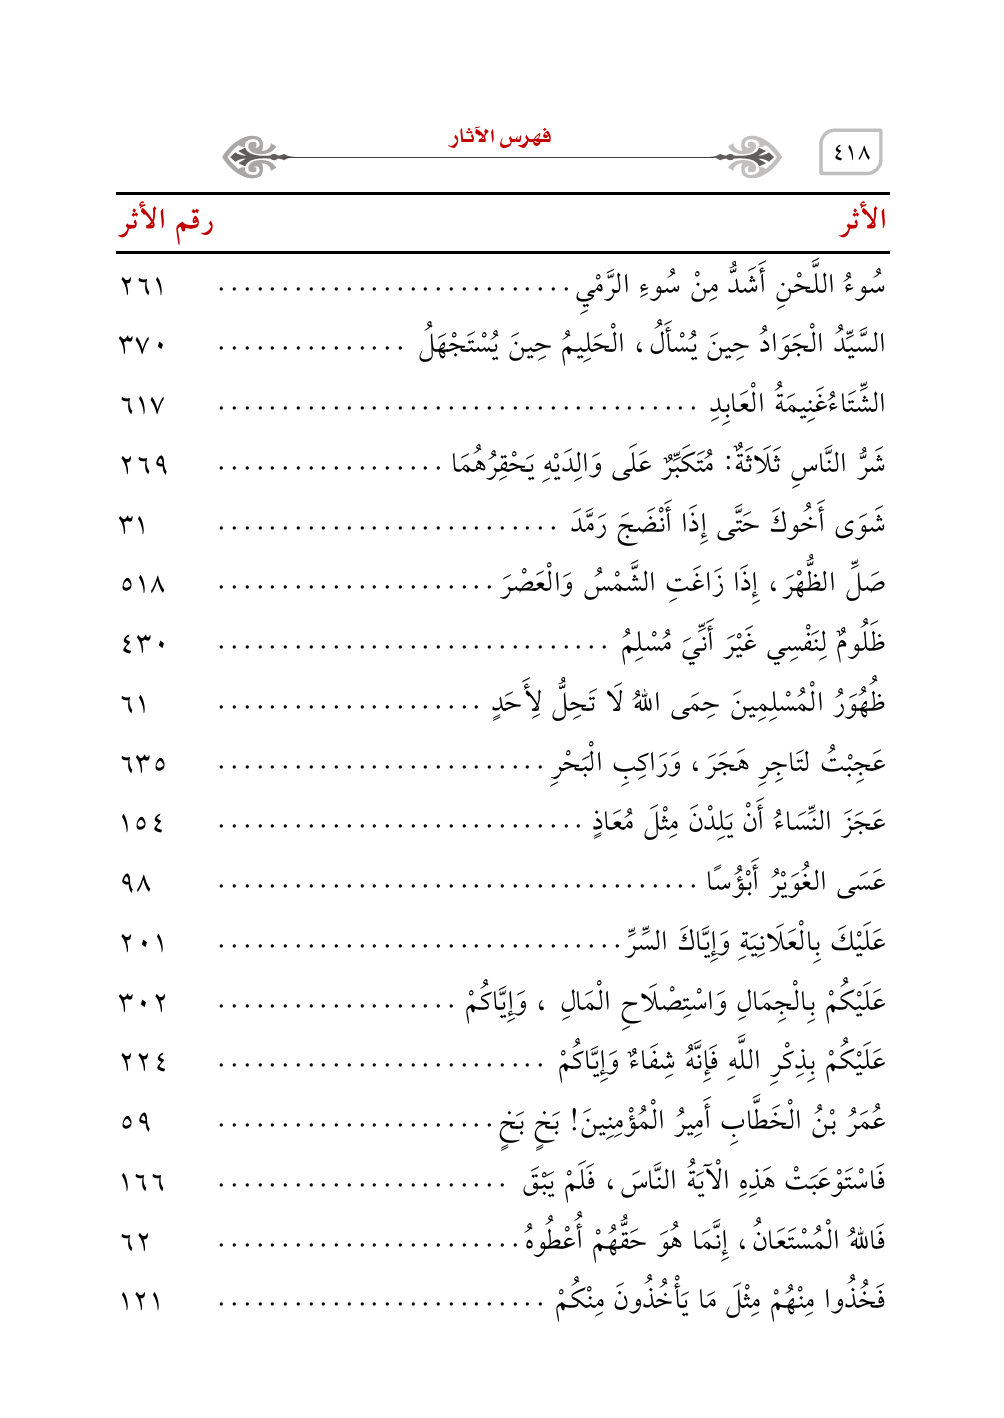 ٤١٨ فهرس الآثار
الأثر رقم الأثر
سُوءُ اللَّحْنِ أَشَدُّ مِنْ سُوءِ الرَّمْيِ ............................ ٢٦١
السَّيِّدُ الْجَوَادُ حِينَ يُسْأَلُ، الْحَلِيمُ حِينَ يُسْتَجْهَلُ ............... ٣٧٠
الشِّتَاءُغَنِيمَةُ الْعَابِدِ ...................................... ٦١٧
شَرُّ النَّاسِ ثَلَاثَةٌ: مُتَكَبِّرٌ عَلَى وَالِدَيْهِ يَحْقِرُهُمَا .................. ٢٦٩
شَوَى أَخُوكَ حَتَّى إِذَا أَنْضَجَ رَمَّدَ ........................... ٣١
صَلِّ الظُّهْرَ، إِذَا زَاغَتِ الشَّمْسُ وَالْعَصْرَ ...................... ٥١٨
ظَلُومٌ لِنَفْسِي غَيْرَ أَنِّيَ مُسْلِمُ ............................... ٤٣٠
ظُهُوَرُ الْمُسْلِمِينَ حِمَى اللهُ لَا تَحِلُّ لِأَحَدٍ ..................... ٦١
عَجِبْتُ لتَاجِرِ هَجَرَ، وَرَاكِبِ الْبَحْرِ .......................... ٦٣٥
عَجَزَ النِّسَاءُ أَنْ يَلِدْنَ مِثْلَ مُعَاذٍ ............................. ١٥٤
عَسَى الغُوَيْرُ أَبْؤُسًا ...................................... ٩٨
عَلَيْكَ بِالْعَلَانِيَةِ وَإِيَّاكَ السِّرِّ ................................ ٢٠١
عَلَيْكُمْ بِالْجِمَالِ وَاسْتِصْلَاحِ الْمَالِ ، وَإِيَّاكُمْ ................... ٣٠٢
عَلَيْكُمْ بِذِكْرِ اللَّهِ فَإِنَّهُ شِفَاءٌ وَإِيَّاكُمْ .......................... ٢٢٤
عُمَرُ بْنُ الْخَطَّابِ أَمِيرُ الْمُؤْمِنِينَ! بَخٍ بَخٍ ...................... ٥٩
فَاسْتَوْعَبَتْ هَذِهِ الْآيَةُ النَّاسَ، فَلَمْ يَبْقَ ....................... ١٦٦
فَاللهُ الْمُسْتَعَانُ، إِنَّمَا هُوَ حَقُّهُمْ أُعْطُوهُ ........................ ٦٢
فَخُذُوا مِنْهُمْ مِثْلَ مَا يَأْخُذُونَ مِنْكُمْ .......................... ١٢١